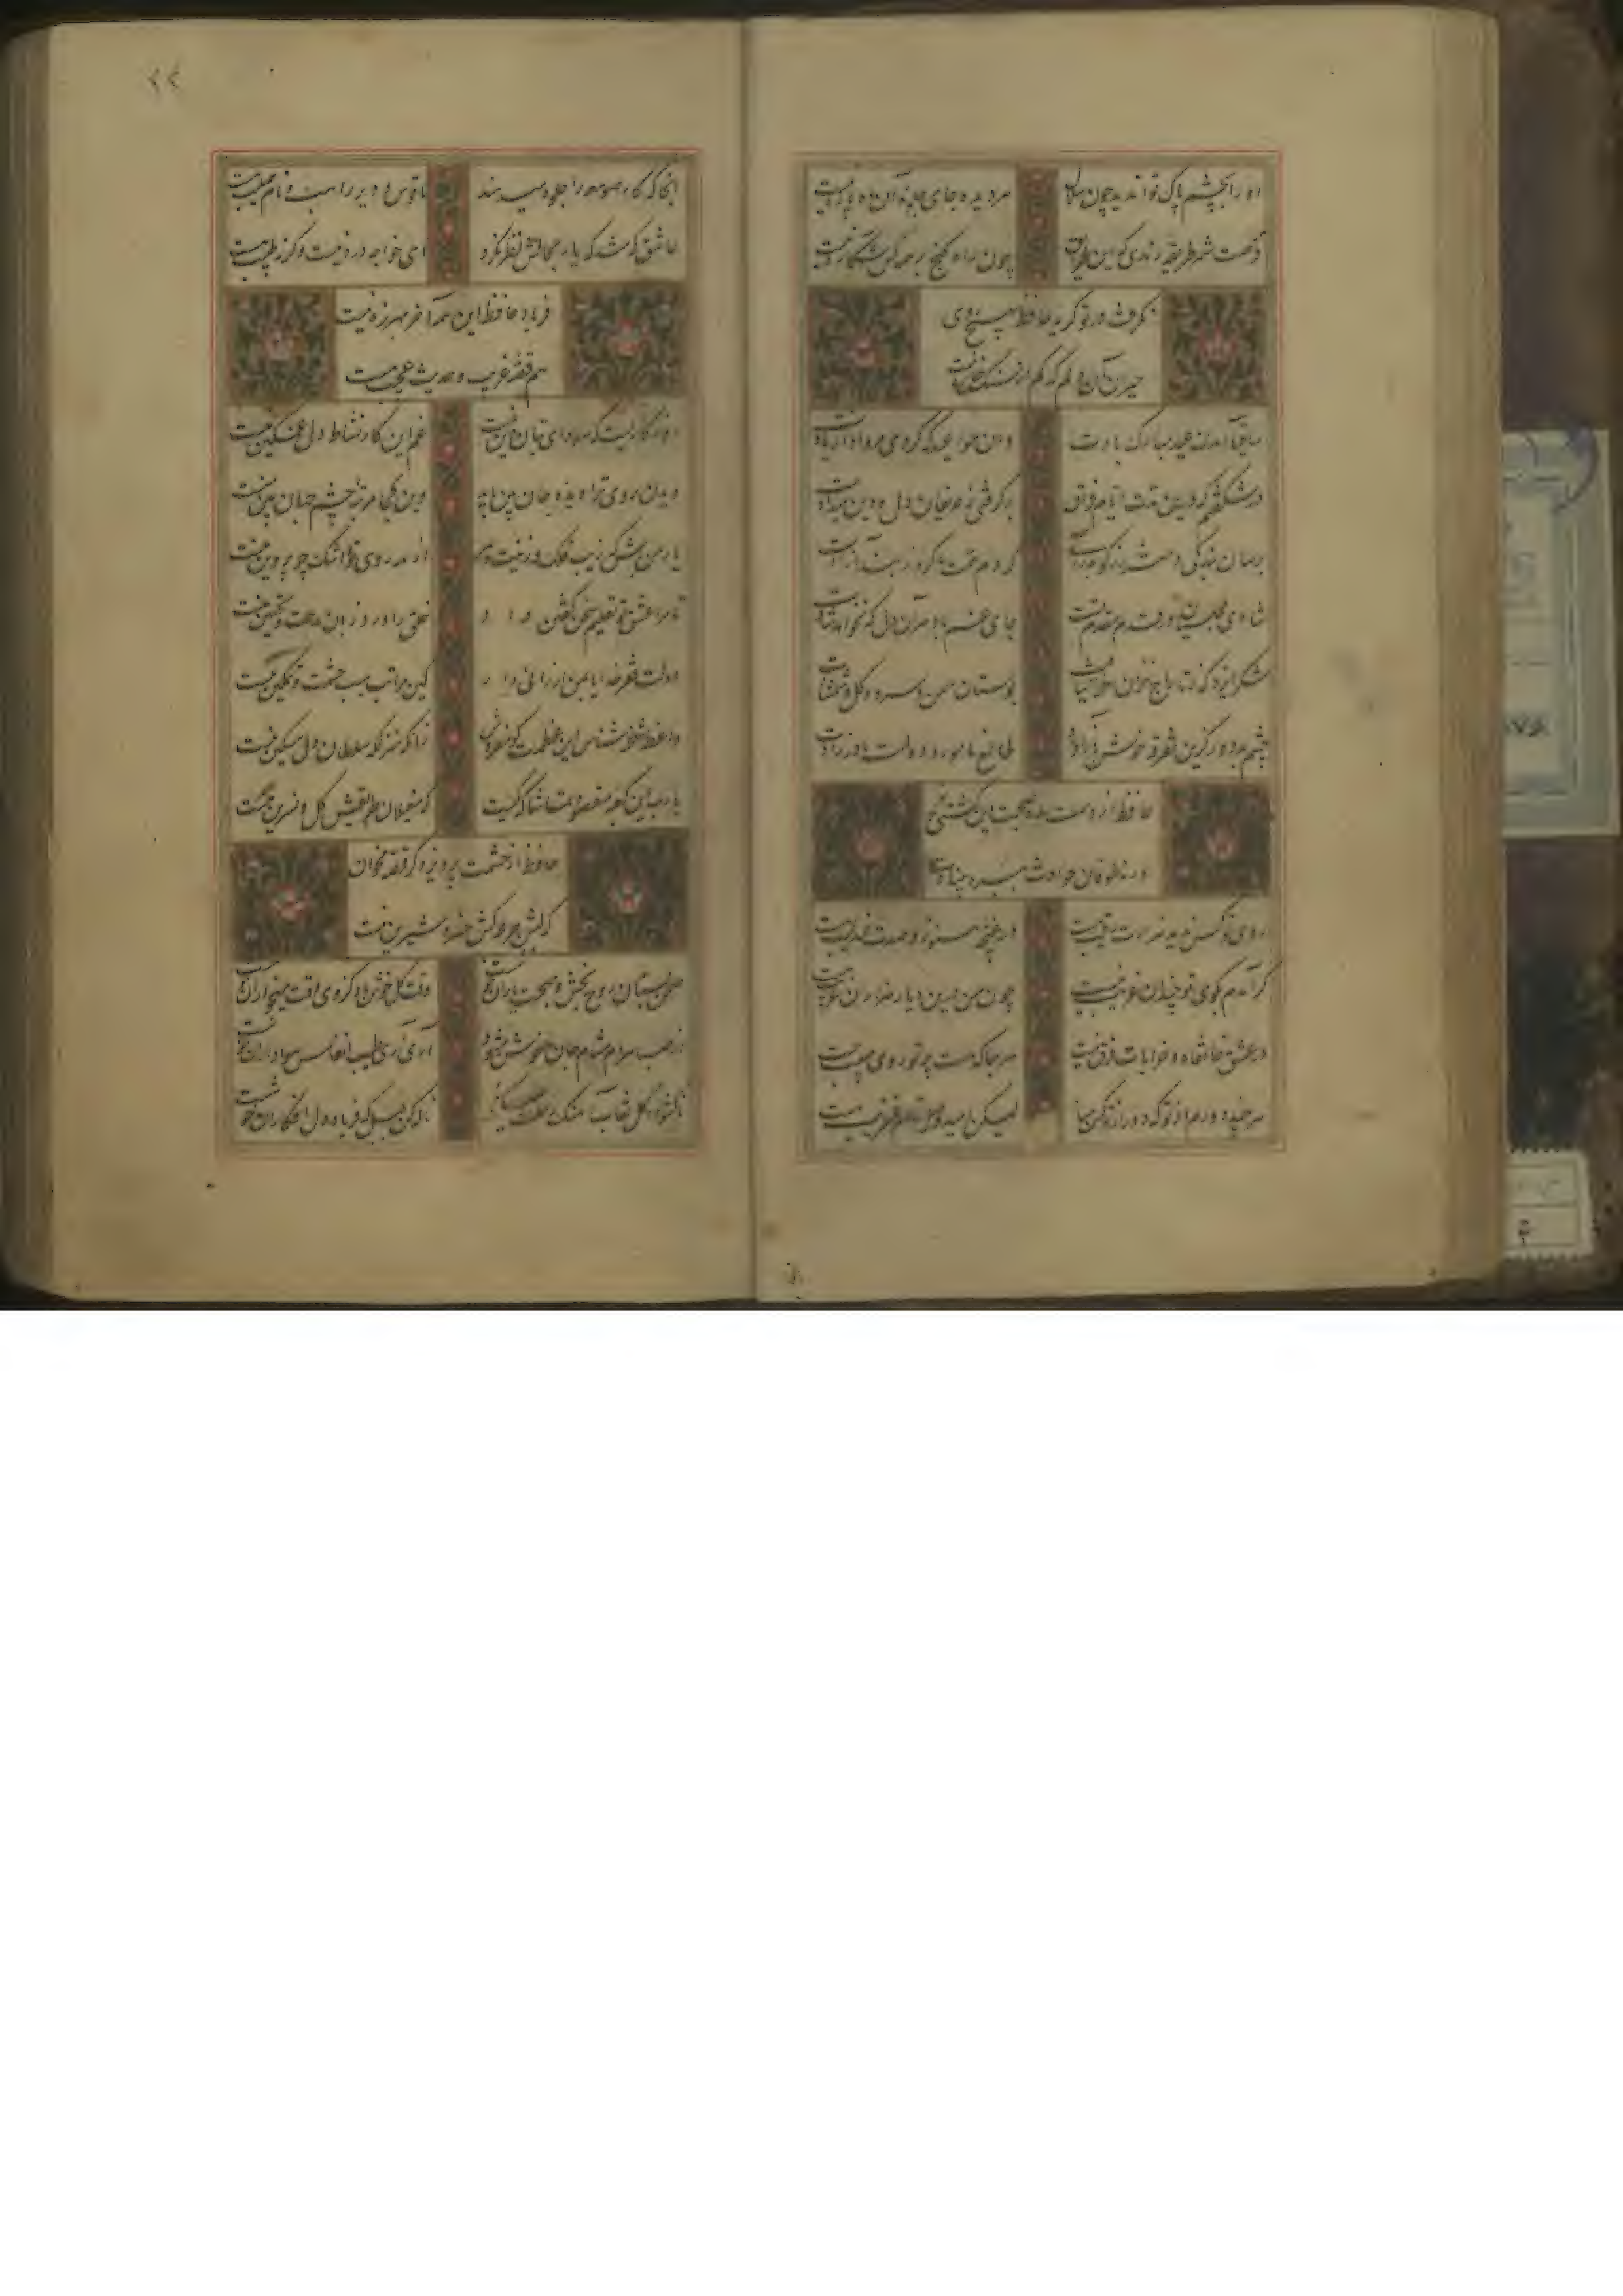 او را بچشم پاک توان دید چون هلال
هر دیده جای جلوه آن ماه پاره نیست
فرصت شمر طریقه رندی که این نشان
چون راه گنج بر همه کس آشکاره نیست
نگرفت در تو گریه حافظ بهیچ روی
حیران آن دلم که کم از سنگ خاره نیست
ساقیا آمدن عید مبارک بادت
وان مواعید که کردی مرواد از یادت
در شگفتم که درین مدت ایام فراق
برگرفتی ز حریفان دل و دل میدادت
برسان بندگی دختر رز گو بدرآی
که دم همت ما کرد ز بند آزادت
شادی مجلسیان در قدم و مقدم تست
جای غم باد هر آن دل که نخواهد شادت
شکر ایزد که ز تاراج خزان رخنه نیافت
بوستان سمن و سرو و گل و شمشادت
چشم بد دور کزین تفرقه خوش بازآورد
طالع نامور و دولت مادرزادت
حافظ از دست مده صحبت این کشتی نوح
ورنه طوفان حوادث ببرد بنیادت
روی تو کس ندید و هزارت رقیب هست
در غنچه هنوز و صدت عندلیب هست
گر آمدم بکوی تو چندان غریب نیست
چون من درین دیار هزاران غریب هست
در عشق خانقاه و خرابات فرق نیست
هر جا که هست پرتو روی حبیب هست
هر چند دورم از تو که دور از تو کس مباد
لیکن امید وصل توام عنقریب هست
۲۲
آنجا که کار صومعه را جلوه میدهند
ناقوس دیر راهب و نام صلیب هست
عاشق که شد که یار بحالش نظر نکرد
ای خواجه درد نیست وگرنه طبیب هست
فریاد حافظ این همه آخر بهرزه نیست
هم قصه غریب و حدیث عجیب هست
روزگاریست که سودای بتان دین منست
غم این کار نشاط دل غمگین منست
دیدن روی ترا دیده جان بین باید
وین کجا مرتبه چشم جهان بین منست
یار من باش که زیب فلک و زینت دهر
از مه روی تو و اشک چو پروین منست
تا مرا عشق تو تعلیم سخن گفتن داد
خلق را ورد زبان مدحت و تحسین منست
دولت فقر خدایا بمن ارزانی دار
کین مراتب سبب حشمت و تمکین منست
واعظ شحنه شناس این عظمت گو مفروش
زانکه منزلگه سلطان دل مسکین منست
یا رب این کعبه مقصود تماشاگه کیست
که مغیلان طریقش گل و نسرین منست
حافظ از حشمت پرویز دگر قصه مخوان
که لبش جرعه کش خسرو شیرین منست
صحن بستان روح بخش و صحبت یاران خوشست
وقت گل خوش باد کز وی وقت میخواران خوشست
از صبا هر دم مشام جان ما خوش میشود
آری آری طیب انفاس هواداران خوشست
ناگشوده گل نقاب آهنگ رحلت ساز کرد
ناله کن بلبل که فریاد دل افگاران خوشست